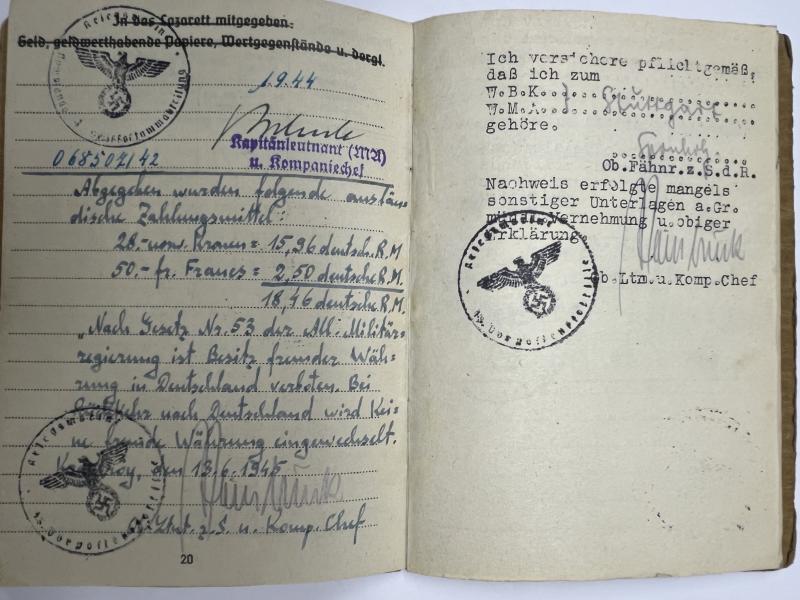 In das Lazarett mitgegeben:
Geld, geldwerthabende Papiere, Wertgegenstände u. dergl.
1944
Kapitänleutnant (MA)
u. Kompaniechef
Abgegeben wurden folgende auslän-
dische Zahlungsmittel:
28.- norw. Kronen = 15,96 deutsch. R.M
50.- fr. Francs = 2,50 deutsche R.M.
18,46 deutsche R.M.
"Nach Gesetz Nr. 53 der All. Militär-
regierung ist Besitz fremder Wäh-
rung in Deutschland verboten. Bei
Rückkehr nach Deutschland wird kei-
ne fremde Währung eingewechselt.
den 13.6.1945
Ob. Ltnt. z.S. u. Komp. Chef
20
Kriegsmarine
Ich versichere pflichtgemäß,
daß ich zum
W.B.K.
W.M.A. } Stuttgart
gehöre.
Ob.Fähnr.z.S.d.R.
Nachweis erfolgte mangels
sonstiger Unterlagen a.Gr.
Vernehmung u.obiger
Erklärung
Ob.Ltm.u.Komp.Chef
Kriegsmarine